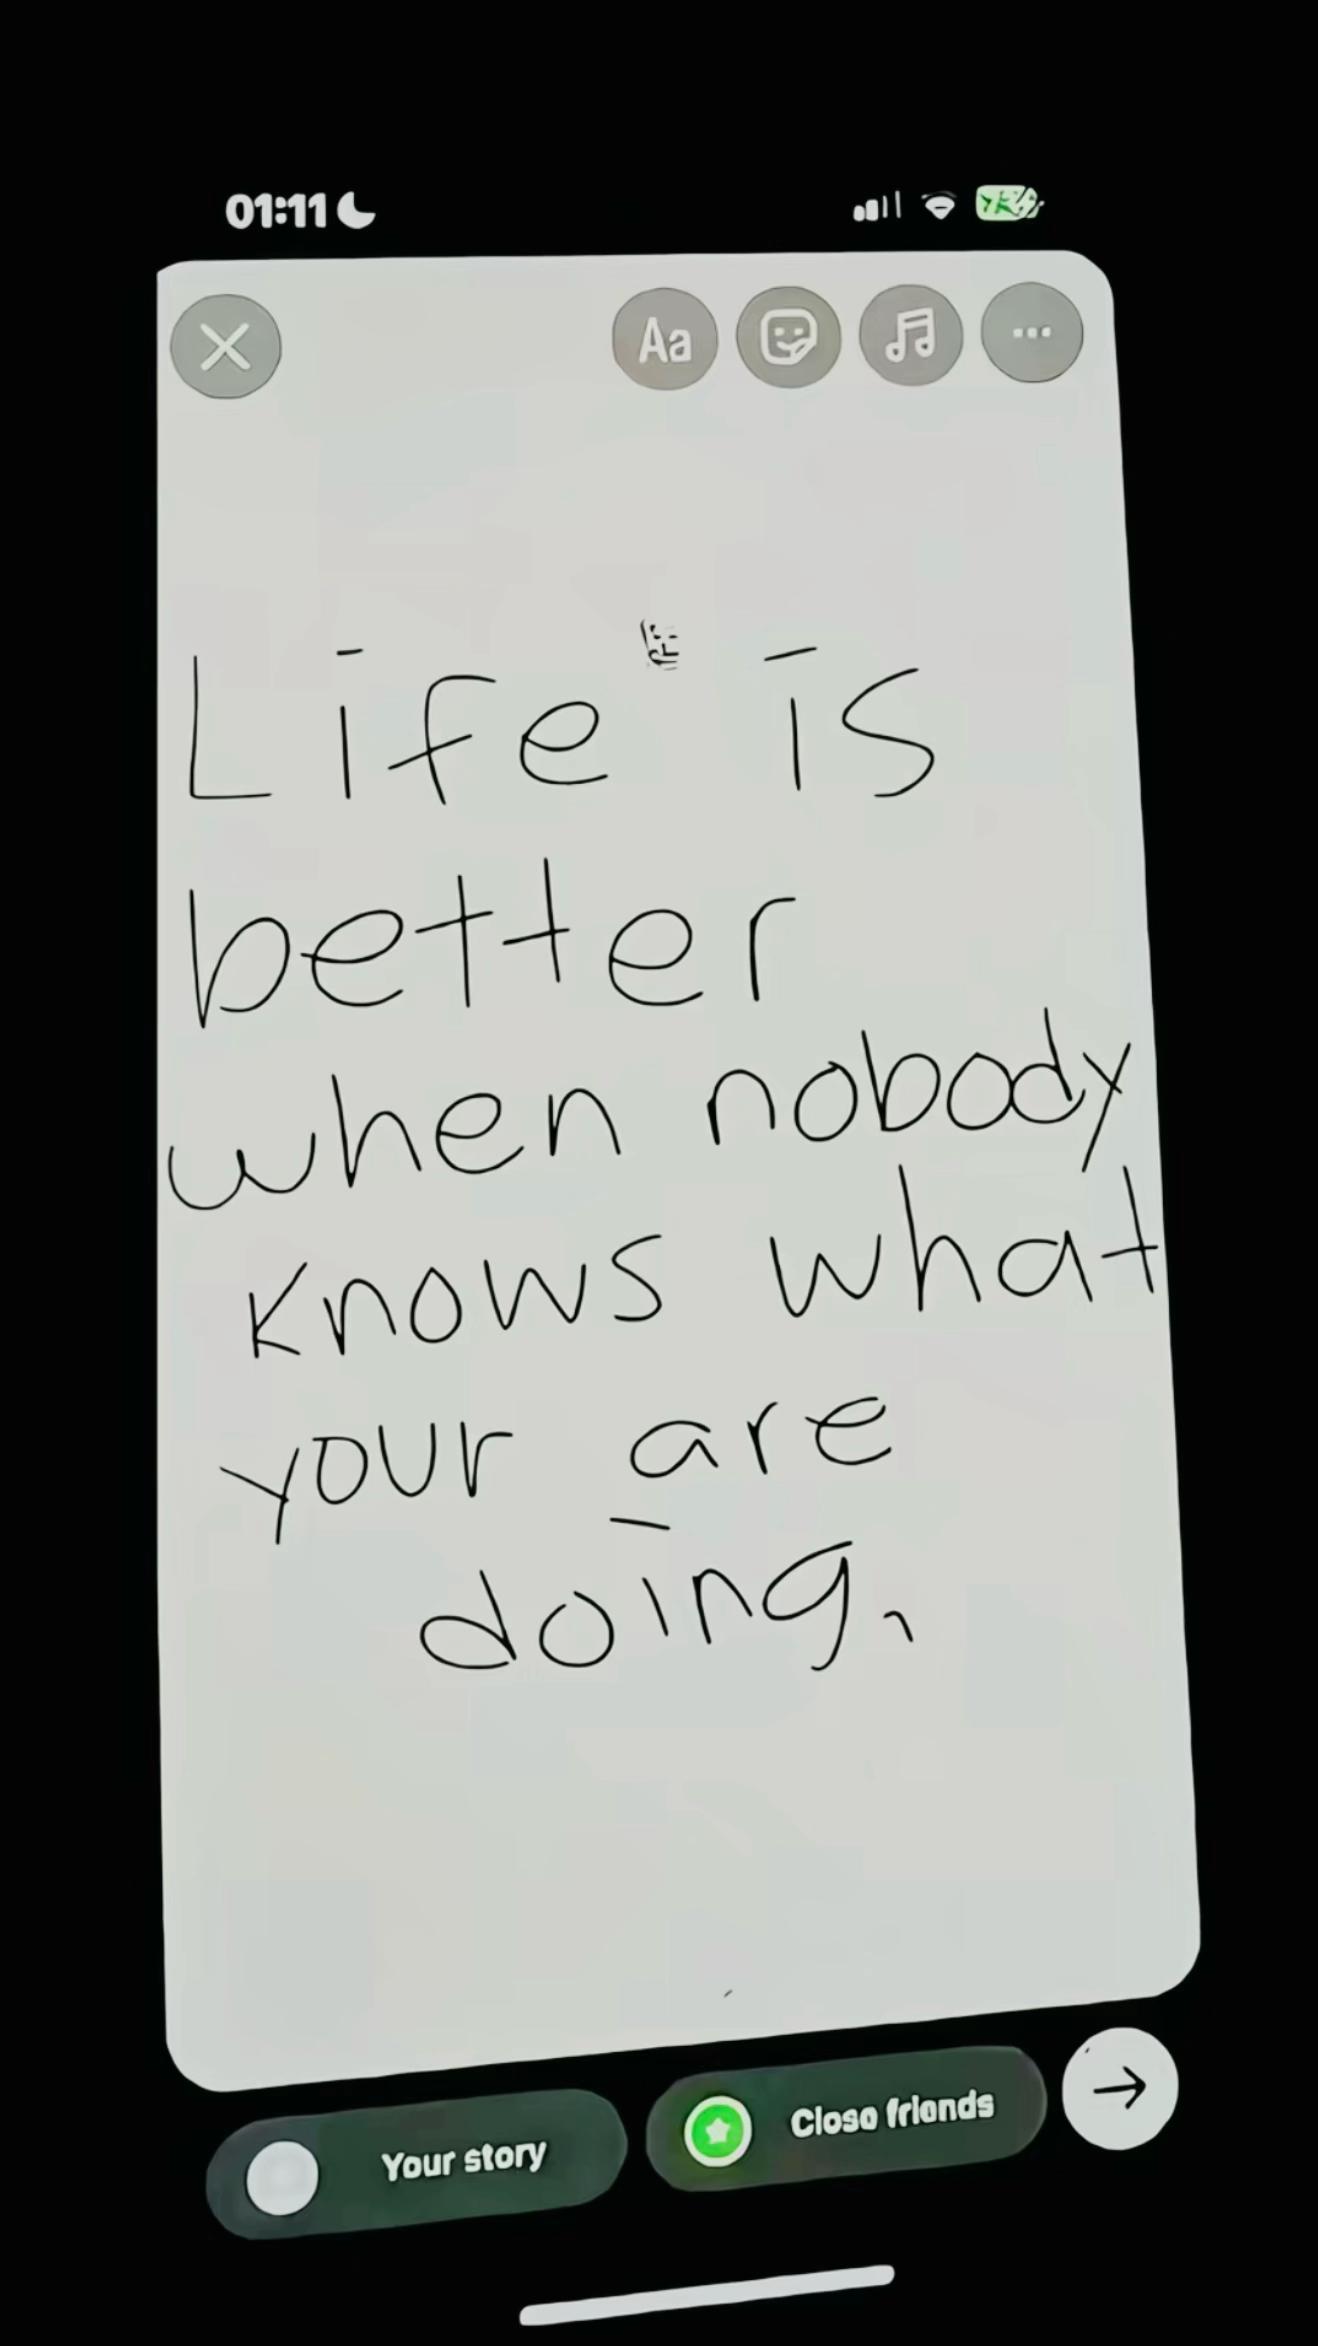 01:11
Aa
Life is
better
when nobody
knows what
your are
doing,
Your story
Close friends